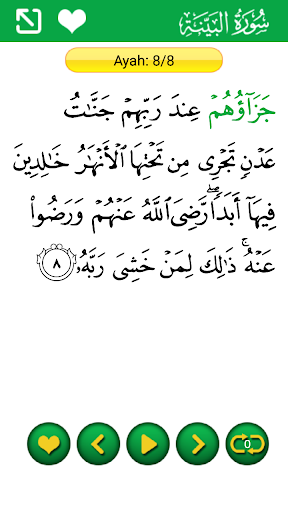 سُورَةُ البَيِّنَة
Ayah: 8/8
جَزَآؤُهُمۡ عِندَ رَبِّهِمۡ جَنَّٰتُ
عَدۡنٖ تَجۡرِي مِن تَحۡتِهَا ٱلۡأَنۡهَٰرُ خَٰلِدِينَ
فِيهَآ أَبَدٗاۖ رَّضِيَ ٱللَّهُ عَنۡهُمۡ وَرَضُواْ
عَنۡهُۚ ذَٰلِكَ لِمَنۡ خَشِيَ رَبَّهُۥ ٨
0